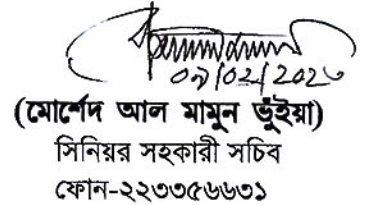 (মোর্শেদ আল মামুন ভূঁইয়া)
সিনিয়র সহকারী সচিব
ফোন-২২৩৩৫৬৬৩১